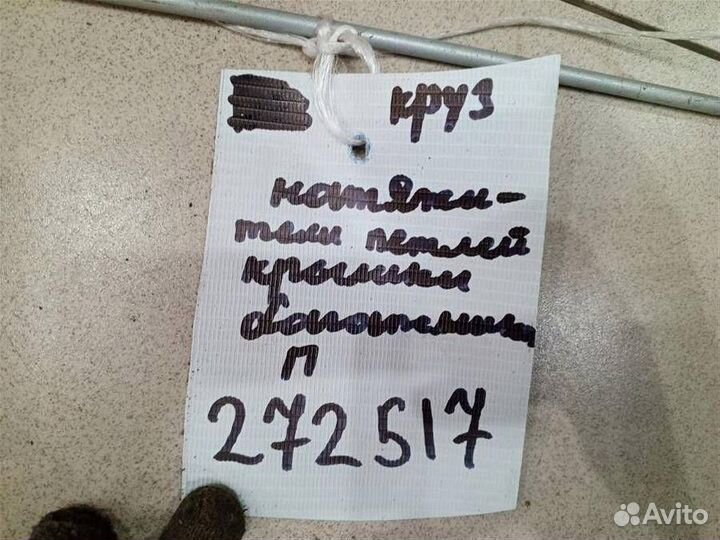 круз
натяжи-
тели петлей
крышки
багажника
п
272517
Avito